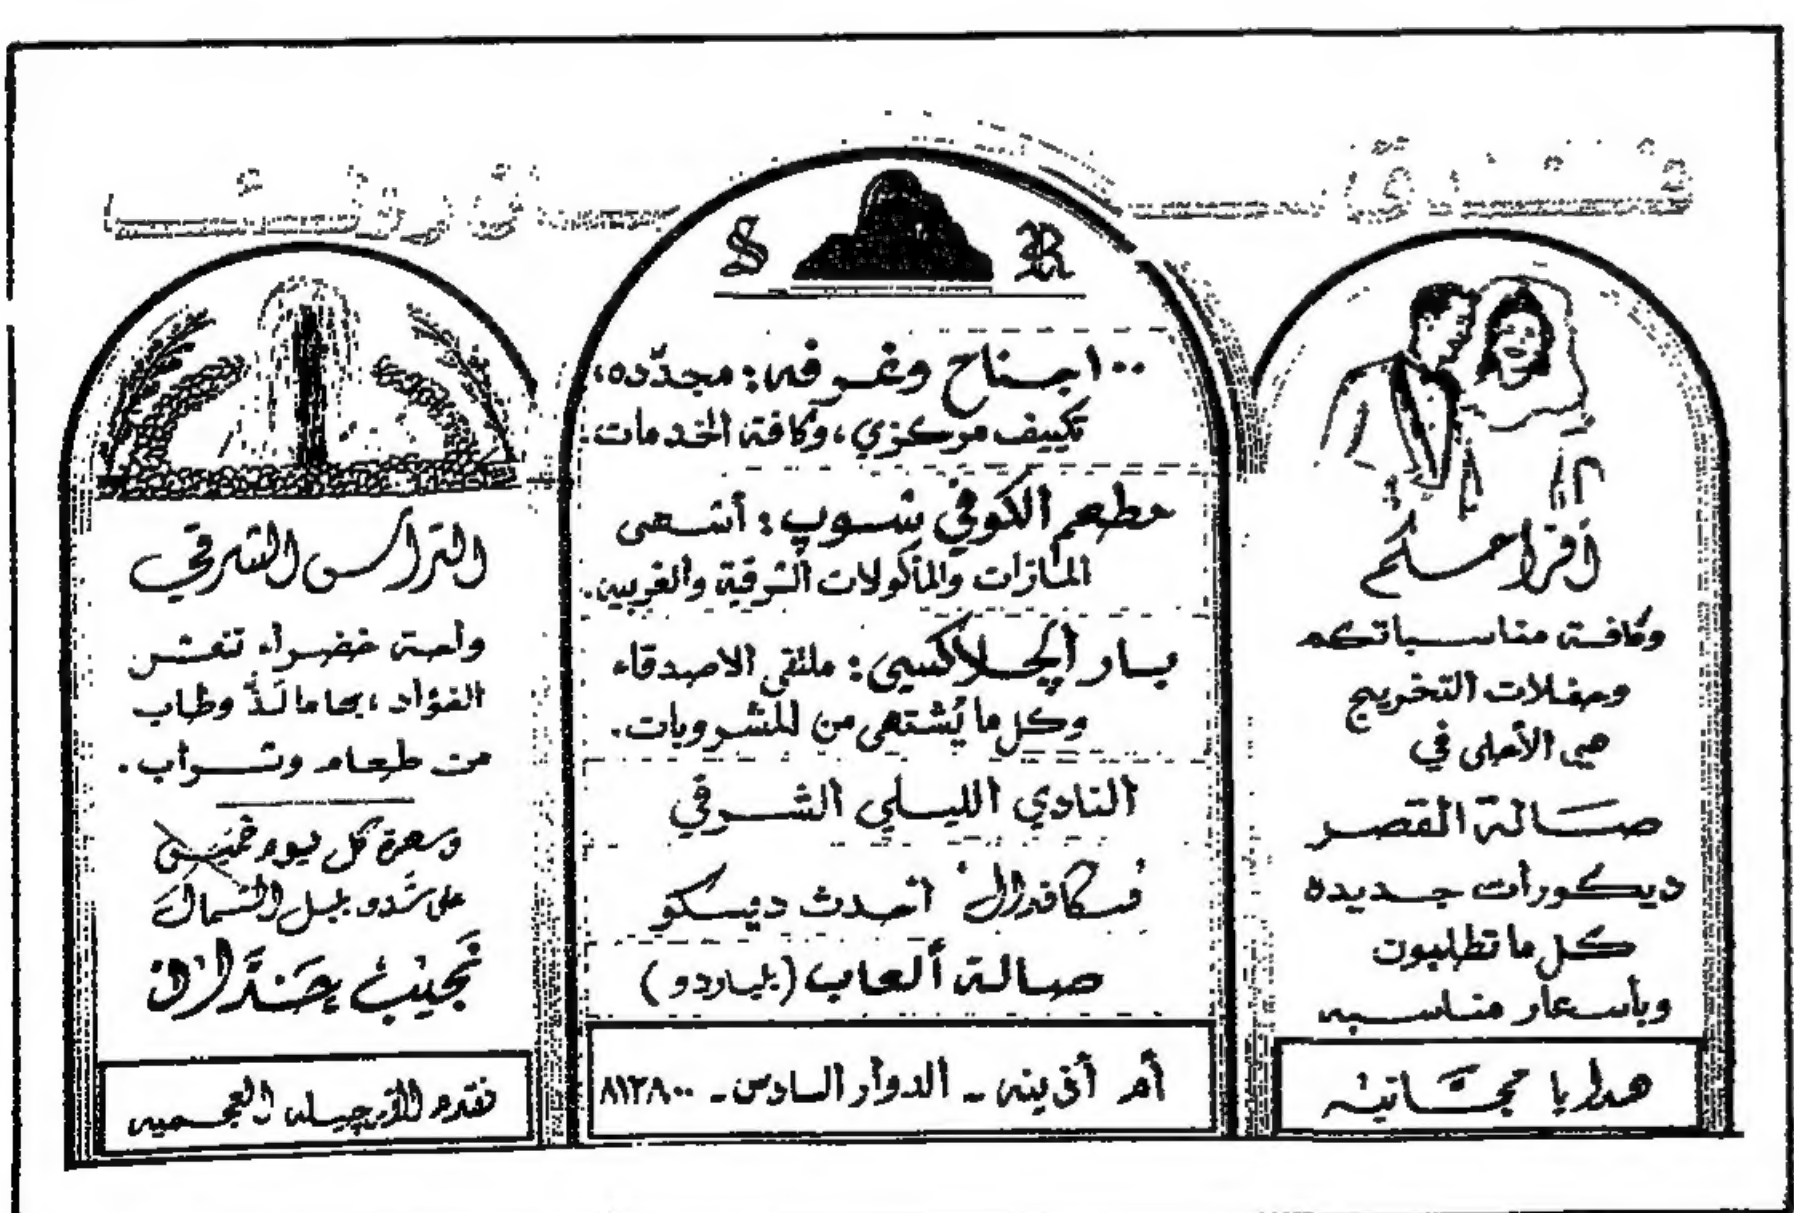 فندق ســاق روكــا
S R
١٠٠ جناح وغرفه: مجدّده،
تكييف مركزي، وكافة الخدمات.
مطعم الكوفي شوب: أشهى
المازات والمأكولات الشرقية والغربيه.
بار الجلاكسي: ملتقى الاصدقاء
وكل ما يُشتهى من المشروبات.
النادي الليلي الشرقي
أحدث ديسكو
صالة ألعاب (بلياردو)
أم أذينه - الدوار السادس - ٨١٣٨٠٠
أفراحكم
وكافة مناسباتكم
وحفلات التخريج
هي الأحلى في
صالة القصر
ديكورات جديده
كل ما تطلبون
وبأسعار مناسبه
هدايا مجانيه
التراس الشرقي
واحة خضراء تنعش
الفؤاد، بها ما لذّ وطاب
من طعام وشراب.
وسهرة كل يوم خميس
على شدو بلبل الشمال
نجيب
نقدم الأرجيله العجميه